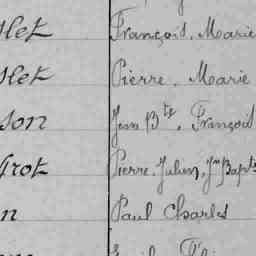 François, Marie
Pierre, Marie
son Jean Bte, François
Pierre, Julien, Jn Bapt
n Paul Charles